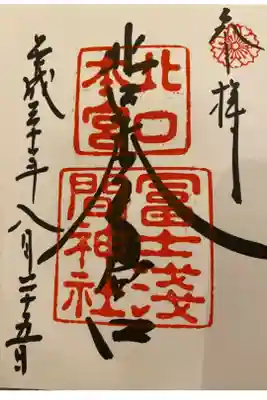 奉拝
北口
本宮
冨士浅
間神社
平成三十年八月二十五日